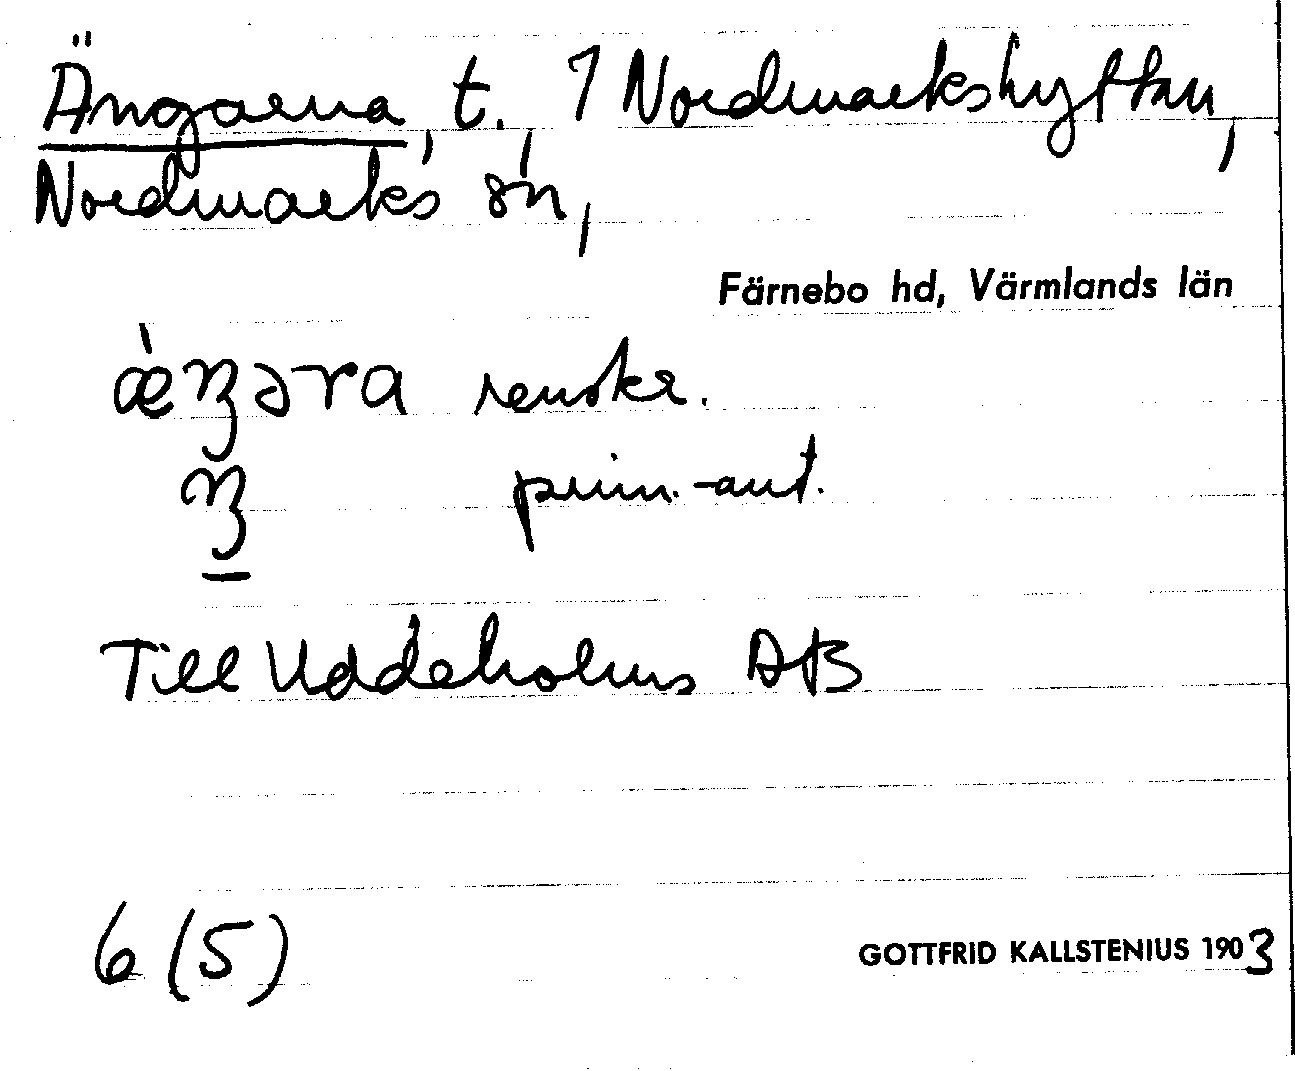 Ängarna, t., 1 Nordmarkshyttan,
Nordmarks sn,
Färnebo hd, Värmlands län
æ̀ŋəra renskr.
ŋ prim.-ant.
Till Uddeholms AB
6 (5)
GOTTFRID KALLSTENIUS 1903